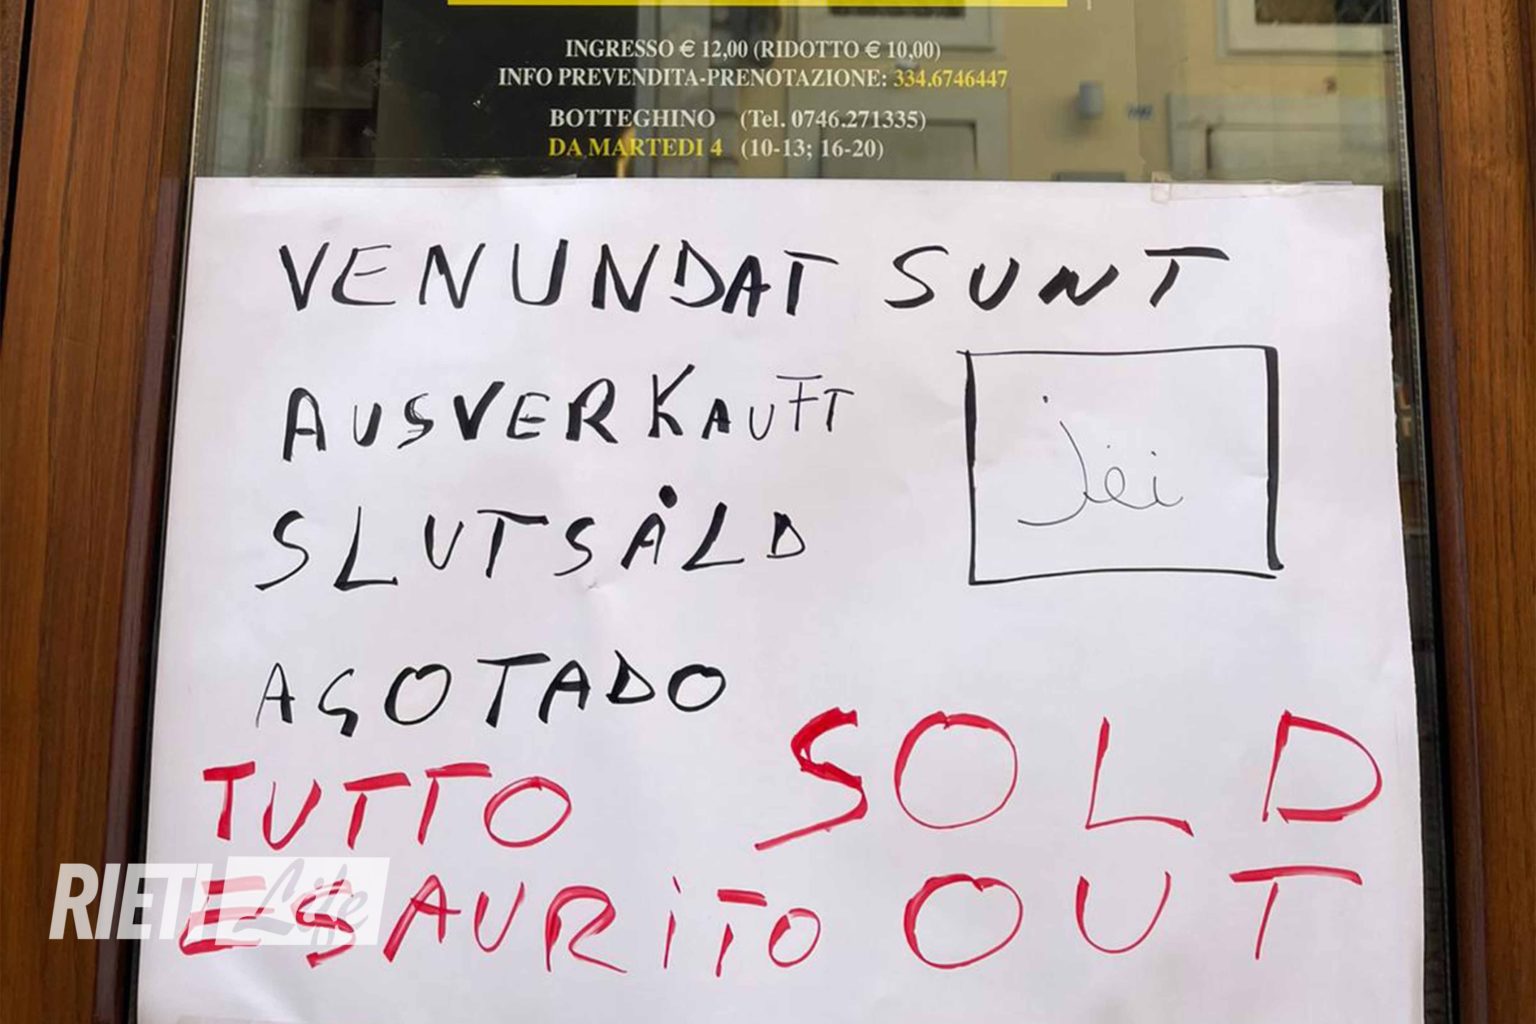 INGRESSO € 12,00 (RIDOTTO € 10,00)
INFO PREVENDITA-PRENOTAZIONE: 334.6746447
BOTTEGHINO (Tel. 0746.271335)
DA MARTEDI 4 (10-13; 16-20)
VENUNDAT SUNT
AUSVERKAUFT
SLUTSÅLD
AGOTADO
TUTTO
ESAURITO
SOLD
OUT
RIETI Life